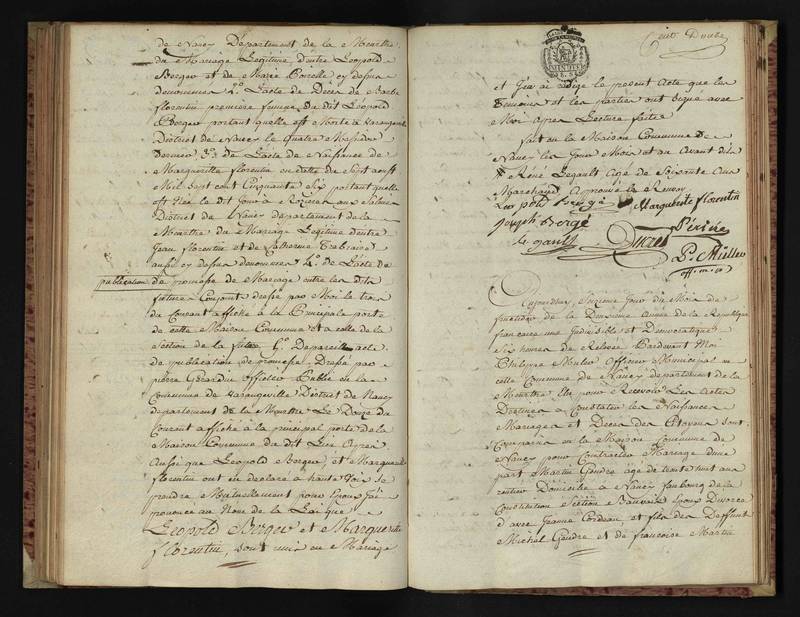 de Nancy Departement de la Meurthe
du Mariage Légitime d'entre Léopold
Berger et de Marie cy dessus
denommées 2.° L'acte de Décès de Barbe
florentin première femme du dit Léopold
Berger portant quelle est Morte à Varangeville
District de Nancy le quatre Messidor
dernier 3.° de L'acte de Naissance de
Margueritte florentin en datte du Sept aoust
Mil Sept cent Cinquante Six portant quelle
est Née le dit Jour a Rozieres aux Salines
District de Nancy departement de la
Meurthe du Mariage Legitime d'entre
Jean florentin et de Catherine
aussi cy dessus denommées 4.° de L'acte de
publication de promesse de Mariage entre les dits
futurs Conjoint dressé par Moi le trois
du Courant affiché a la Principale porte
de cette Maison Commune et a celle de la
Section de la future 5.° De pareille acte
de publication de promesse Dressé par
pierre Gerardin officier Public en la
Commune de Varangeville District de Nancy
departement de la Meurthe Le Douze du
Courant affiché à la principal porte de la
Maison Commune du dit Lieu Après
Aussi que Léopold Berger, et Margueritte
florentin ont eu declaré à haute Voix se
prendre Mutuellement pour Epoux J'ai
prononcé au Nom de la Loi que
Léopold Berger et Margueritte
florentin, sont unis en Mariage
Cent Douze
et J'ai rédigé le present Acte que les
temoins et les parties ont signé avec
Moi Apres Lecture faite
fait en la Maison Commune de
Nancy les Jour Mois et an avant dits
René Legault Agé de Soixante ans
Marchand Approuvé le Renvoy
Leopold Bergé Marguerite florentin
joseph Bergé
le gault Ducret Périn
P. Müller
off. m. p.
Aujourdhuy Onzieme Jour du Mois de
fructidor de la Deuxième Année de la République
francaise une Indivisible et Democratique
Six heures de Relevée Pardevant Moi
Philippe Muler Officier Municipal en
cette Commune de Nancy departement de la
Meurthe Elu pour Recevoir Les Actes
Destinés à Constater les Naissances
Mariages et Deces des Citoyens Sont
Comparus en la Maison Commune de
Nancy pour Contracter Mariage d'une
part Martin Gendre agé de trente huit ans
rentier Domicilié a Nancy faubourg de la
Constitution Section Beauvais Epoux Divorcé
d'avec Jeanne Cordeau et fils des Deffunts
Michel Gendre et de françoise Martin